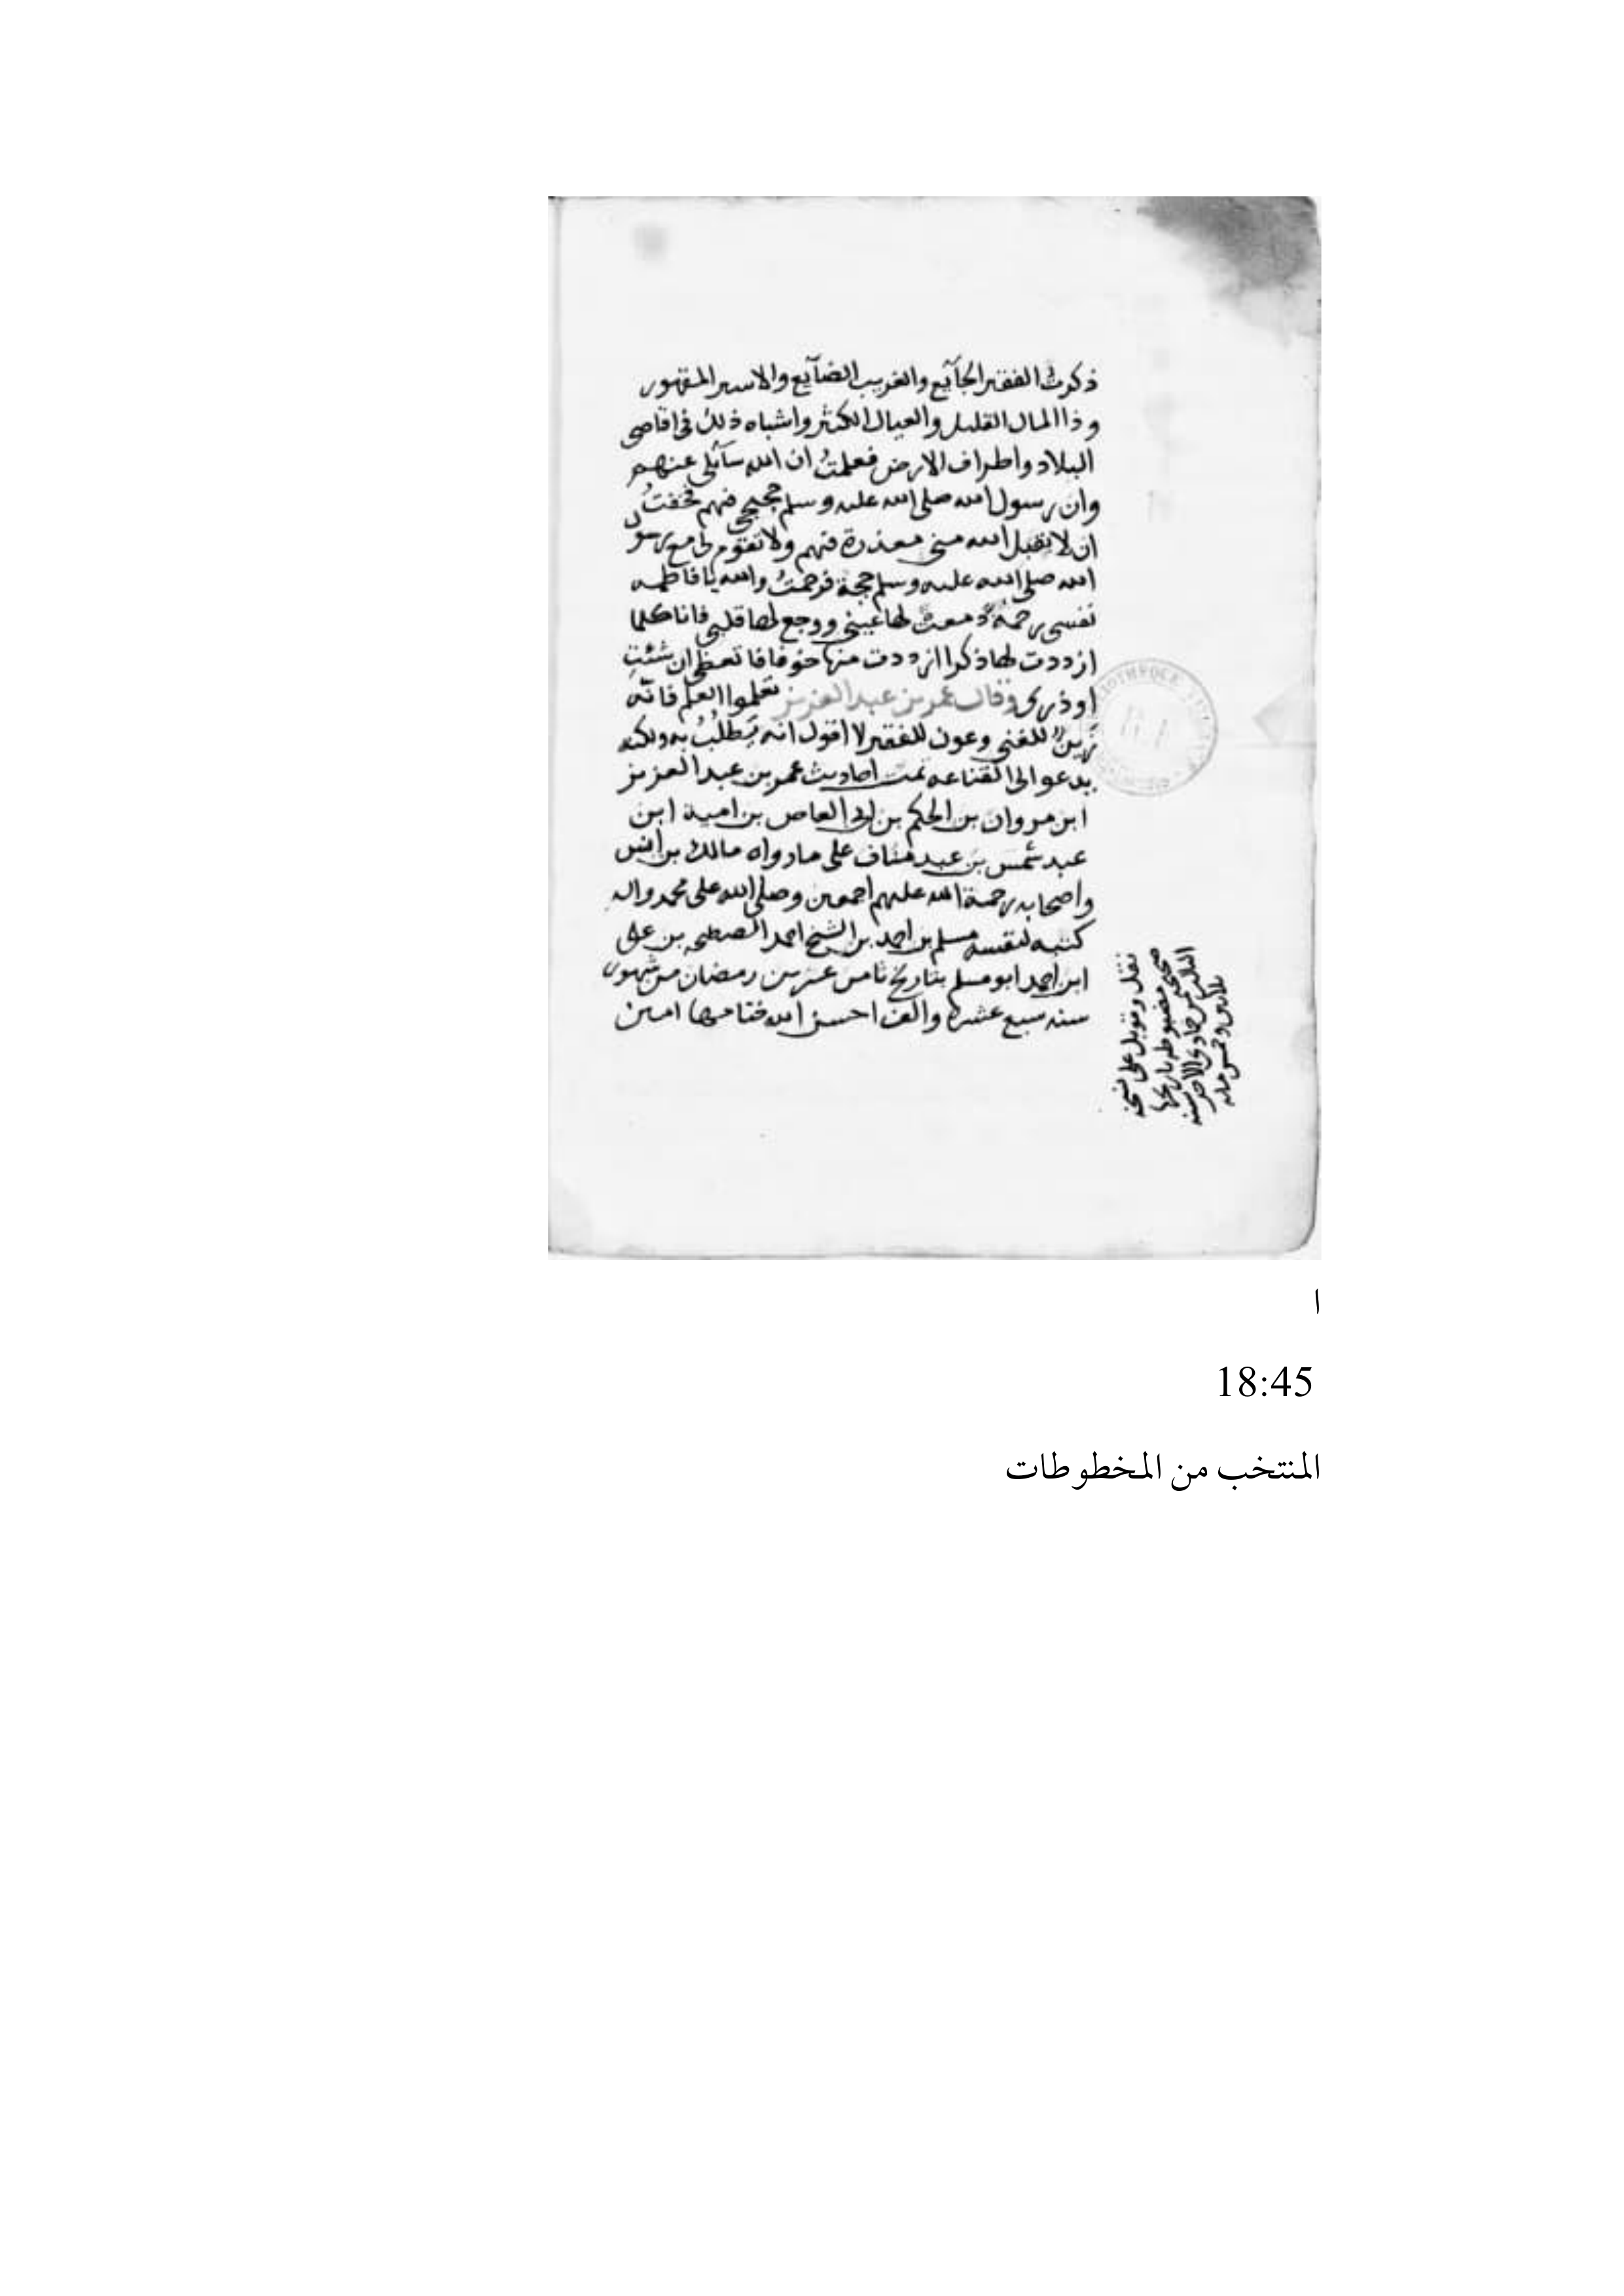 ذكرت الفقير الجآيع والغريب الضآيع والاسير المقهور
وذا المال القليل والعيال الكثير واشباه ذلك في اقاصي
البلاد واطراف الارض فعلمتُ ان الله سآئلي عنهم
وان رسول الله صلى الله عليه وسلم حجيجي فيهم فخفتُ
ان لا يقبل الله مني معذرة فيهم ولا تقوم لي مع رسول
الله صلى الله عليه وسلم حجة فرحمتُ والله يا فاطمه
نفسى رحمةً دمعتْ لها عيني ووجع لها قلبي فانا كلما
ازددت لها ذكرا ازددت منها خوفا فاتعظي ان شئتِ
او ذرى وقال عمر بن عبد العزيز تعلموا العلم فانّه
زَينٌ للغني وعون للفقير لا اقول انه يَطلُبُ به ولكنه
يدعو الى القناعه تمت احاديث عمر بن عبد العزيز
ابن مروان بن الحكم بن ابي العاص بن امية ابن
عبد شمس بن عبد مناف على ما رواه مالك بن انس
واصحابه رحمة الله عليهم اجمعين وصلى الله على محمد واله
كتبه لنفسه مسلم بن احمد بن الشيخ احمد بن على
ابن احمد ابو مسلم بتاريخ ثامن عشرين رمضان من شهور
سنه سبع عشرة والف احسن الله ختامها امين
نقل وقوبل على نسخه
صحيحه مضبوطه تاريخها
جمادى الاخر سنه
ثلاثين وخمس مايه
ا
18:45
المنتخب من المخطوطات